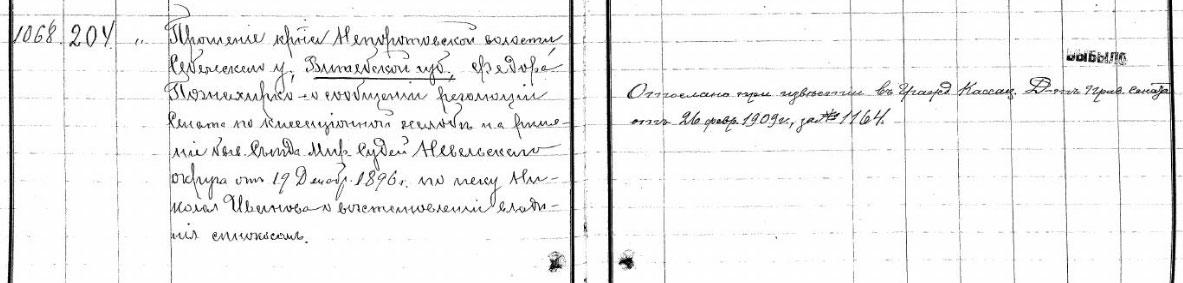 1068. 204 „ Прошеніе кр-на Непоротовской волости,
Себежскаго у., Витебской губ., Федора
Познахирко – о сообщеніи резолюціи
Сената по кассаціонной жалобѣ на рѣше-
ніе быв. Съѣзда Мир. Судей Невельскаго
округа отъ 19 Декабр. 1896 г. по иску Ни-
колая Иванова о возстановленіи владѣ-
нія сѣнокосомъ.
ВЫБЫЛО
Отослано при извѣстіи въ Гражд. Кассац. Д-тъ Прав. Сената
отъ 26 февр. 1909 г., за № 1164.